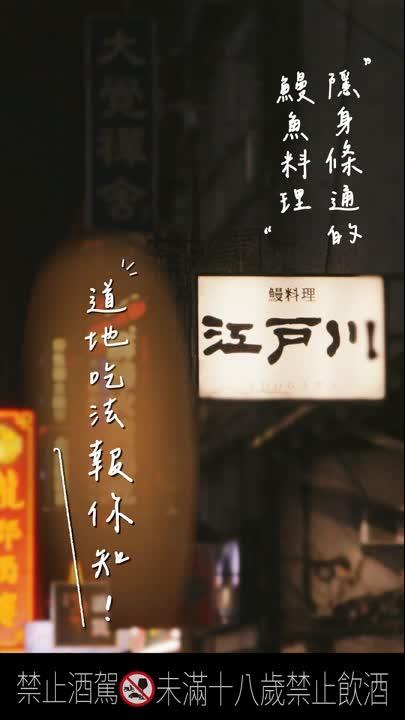 隱身條通的
鰻魚料理
道地吃法報你知！
大覺禪舍
鰻料理
江戸川
禁止酒駕 未滿十八歲禁止飲酒